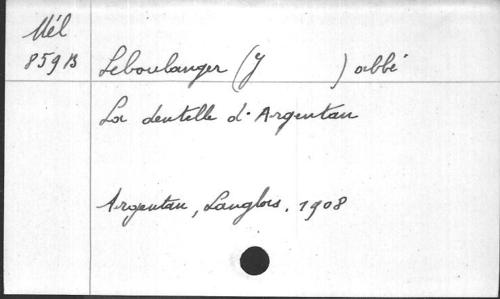 Mél
859B
Leboulanger (J ) abbé
La dentelle d'Argentan
Argentan, Langlois. 1908